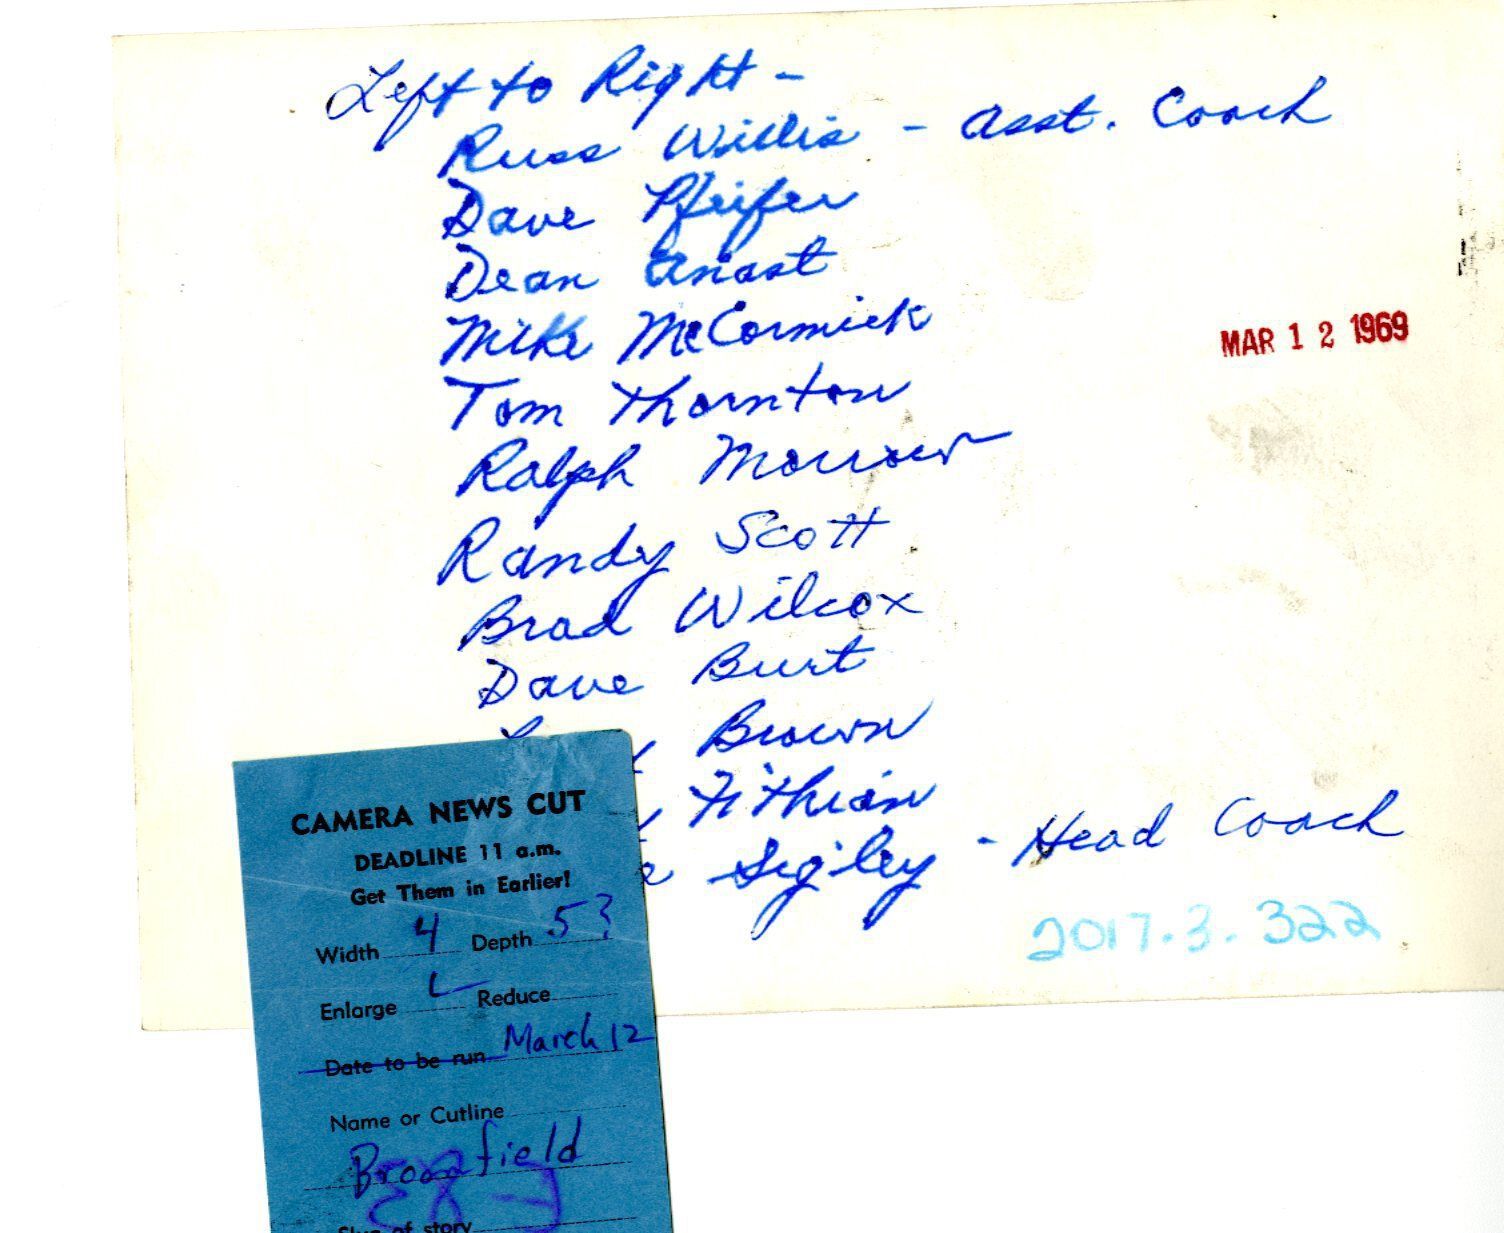 Left to Right -
Russ Willis - Asst. Coach
Dave Pfeifer
Dean Anast
Mike McCormick
Tom Thornton
Ralph Morrow
Randy Scott
Brad Wilcox
Dave Burt
Brown
Fithian
Sigley - Head Coach
MAR 12 1969
2017.3.322
CAMERA NEWS CUT
DEADLINE 11 a.m.
Get Them in Earlier!
Width 4 Depth 5?
Enlarge Reduce
Date to be run March 12
Name or Cutline
Broomfield
Slug of story